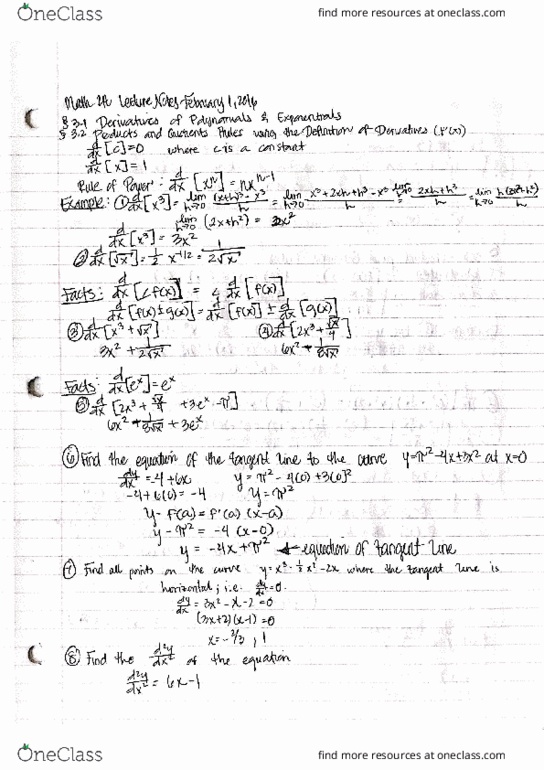 OneClass find more resources at oneclass.com
Math 2A Lecture Notes February 1, 2016
§ 3.1 Derivatives of Polynomials & Exponentials
§ 3.2 Products and Quotients Rules using the Definition of Derivatives (f'(x))
d/dx [c]=0 where c is a constant
d/dx [x]=1
Rule of Power: d/dx [xⁿ] = nxⁿ⁻¹
Example: ① d/dx [x³] = lim h→0 (x+h)³ - x³ / h = lim h→0
lim h→0 (2x+h²) = 3x²
d/dx [x³] = 3x²
② d/dx [√x] = 1/2 x^-1/2 = 1/2√x
Facts: d/dx [c f(x)] = c d/dx [f(x)]
d/dx [f(x) ± g(x)] = d/dx [f(x)] ± d/dx [g(x)]
③ d/dx [x³ + √x] ④ d/dx [2x³ + √x/4]
3x² + 1/2√x 6x² + 1/8√x
Facts: d/dx [eˣ] = eˣ
⑤ d/dx [2x³ + √x/4 + 3eˣ - π]
6x² + 1/8√x + 3eˣ
⑥ Find the equation of the tangent line to the curve y=π²-4x+3x² at x=0
dy/dx = -4+6x y = π² - 4(0) + 3(0)²
-4+6(0) = -4 y = π²
y - f(a) = f'(a) (x-a)
y - π² = -4 (x-0)
y = -4x + π² ← equation of tangent line
⑦ Find all points on the curve y = x³ - 1/2 x² - 2x where the tangent line is
horizontal; i.e. dy/dx = 0.
dy/dx = 3x² - x - 2 = 0
(3x+2)(x-1) = 0
x = -2/3, 1
⑧ Find the d²y/dx² of the equation
d²y/dx² = 6x - 1
OneClass find more resources at oneclass.com